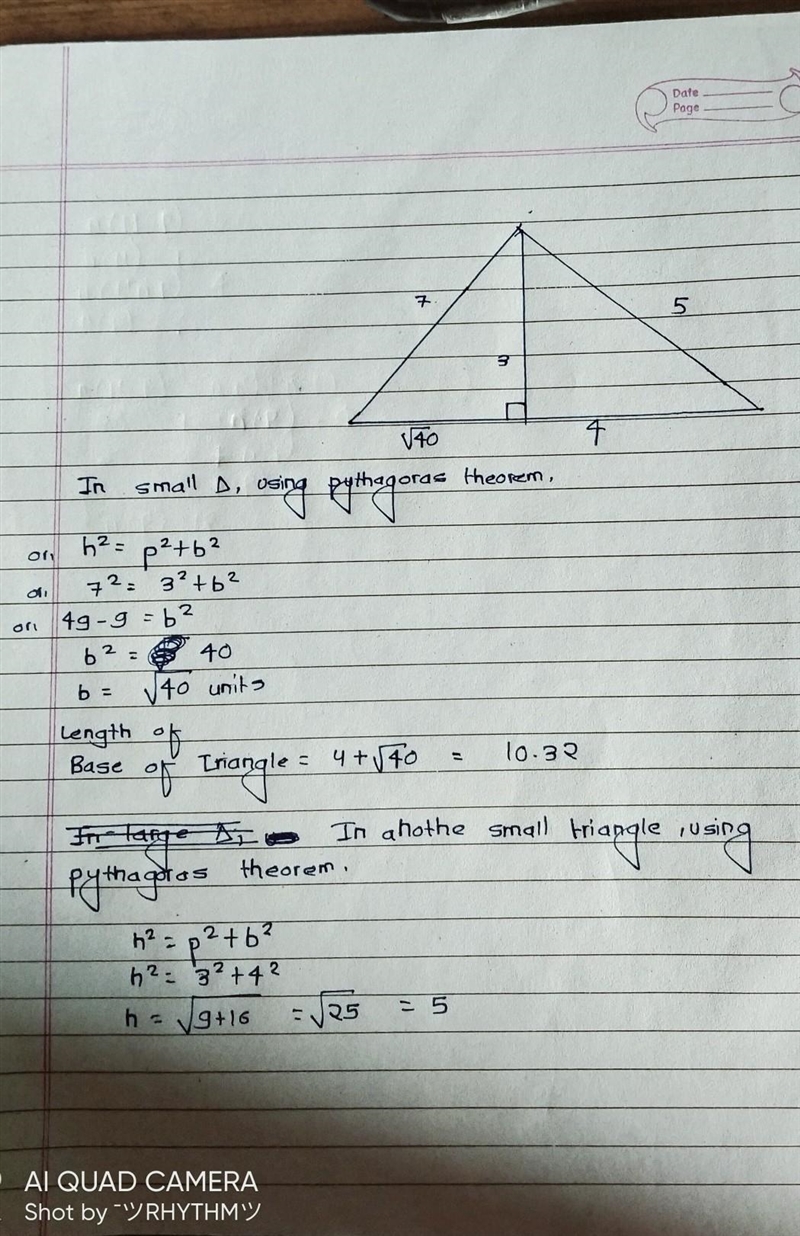 Date
Page
7
5
3
√40
4
In small Δ, using pythagoras theorem,
or, h² = p² + b²
or, 7² = 3² + b²
or, 49 - 9 = b²
b² = 40
b = √40 units
Length of
Base of Triangle = 4 + √40 = 10.32
In large Δ, In anothe small triangle, using
pythagoras theorem.
h² = p² + b²
h² = 3² + 4²
h = √9+16 = √25 = 5
AI QUAD CAMERA
Shot by ˉツRHYTHMツ